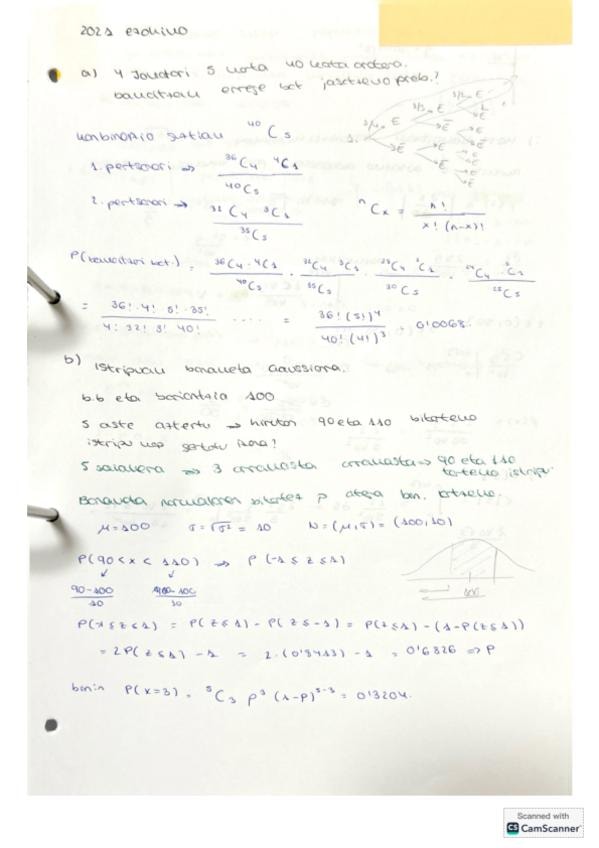 2021 ezohiko
a) 4 Jokalari. 5 karta 40 karta orotara.
bakoitzak errege bat jasotzeko prob.?
Konbinazio guztiak ⁴⁰C₅
1. pertsonari ⇒ ³⁶C₄ ⁴C₁ / ⁴⁰C₅
2. pertsonari → ³²C₄ ³C₁ / ³⁵C₅
ⁿCₓ = n! / x! (n-x)!
P(bakoitzari bat.) = ³⁶C₄ · ⁴C₁ / ⁴⁰C₅ · ³²C₄ ³C₁ / ³⁵C₅ · ²⁸C₄ ²C₁ / ³⁰C₅ · ²⁴C₄ ¹C₁ / ²⁵C₅
= 36! · 4! · 5! · 35! / 4! 32! 3! 40! ..... = 36! (5!)⁴ / 40! (4!)³ = 0'0068.
b) Istripuak banaketa Gaussiarra.
b.b eta bariantza 100
5 aste aztertu → hirutan 90 eta 110 bitarteko
istripu kop gertatu izana!
5 saiakera ⇒ 3 arrakasta arrakasta ⇒ 90 eta 110
tarteko istripu
Banaketa normalaren bitartez p atera bin. lortzeko.
μ=100 σ=√σ² = 10 N = (μ,σ) = (100,10)
P(90<x<110) ⇒ P(-1≤z≤1)
90-100 / 10
100
P(1≤z≤1) = P(z≤1) - P(z≤-1) = P(z≤1) - (1-P(z≤1))
= 2P(z≤1) - 1 = 2·(0'8413) - 1 = 0'6826 ⇒ P
banin P(x=3) = ⁵C₃ p³ (1-p)⁵⁻³ = 0'3204.
Scanned with
CS CamScanner